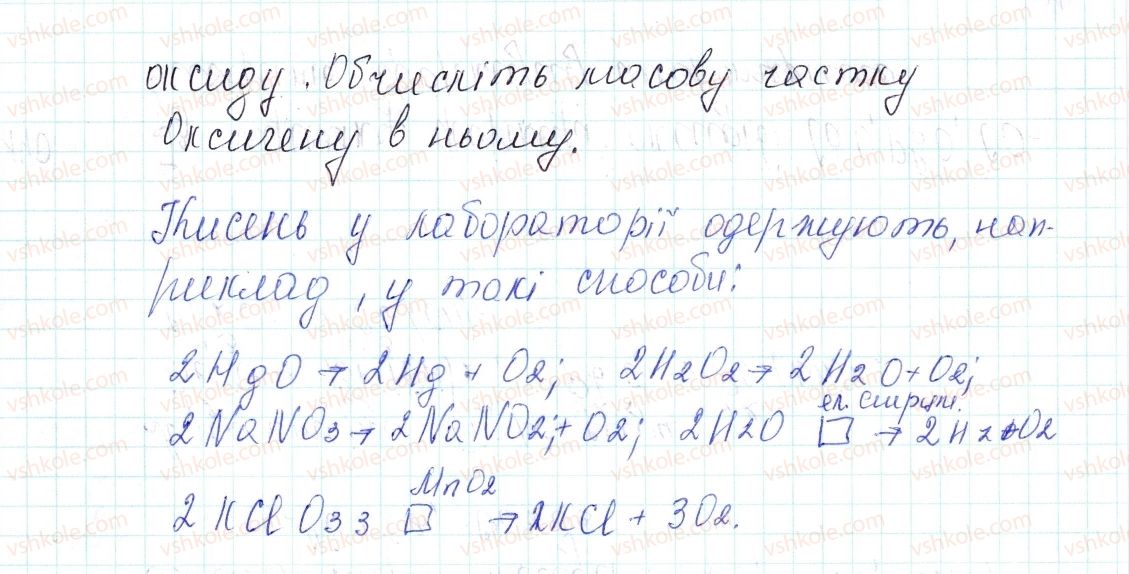 оксиду. Обчисліть масову частку
Оксигену в ньому.
Кисень у лабораторії одержують, нап-
риклад, у такі способи:
2HgO → 2Hg + O2; 2H2O2 → 2H2O + O2;
ел. струм.
2NaNO3 → 2NaNO2; + O2; 2H2O □ → 2H2 + O2
MnO2
2KClO3 3 □ → 2KCl + 3O2.